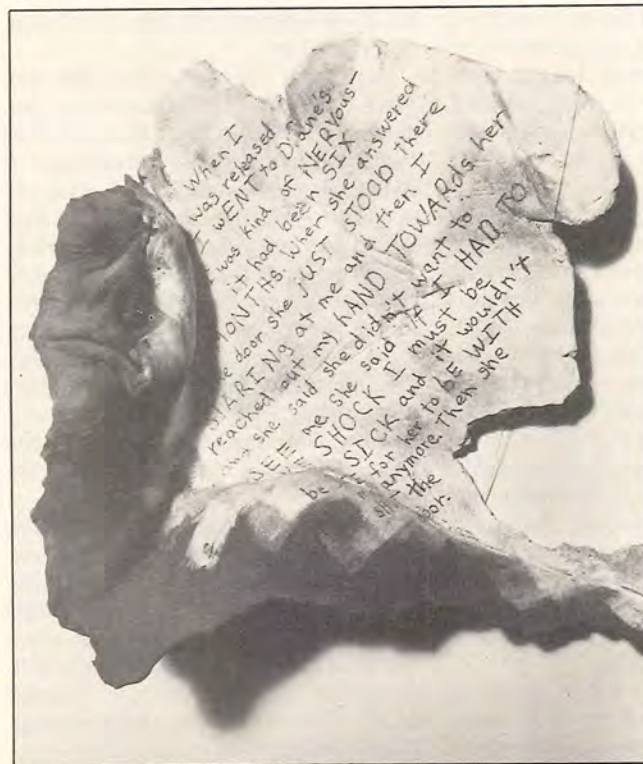 When I
was released
I WENT to Diane's.
I was kind of NERVous-
it had been SIX
MONTHs. When she answered
e door she JUST STOOD There
STARING at me and then I
reached out my hAND TOWARDs her
she said she didn't want to
SEE me she said if I HAD TO
SHOCK I must be
SICK and it wouldn't
be for her to BE WITH
anymore. Then she
the
oor.